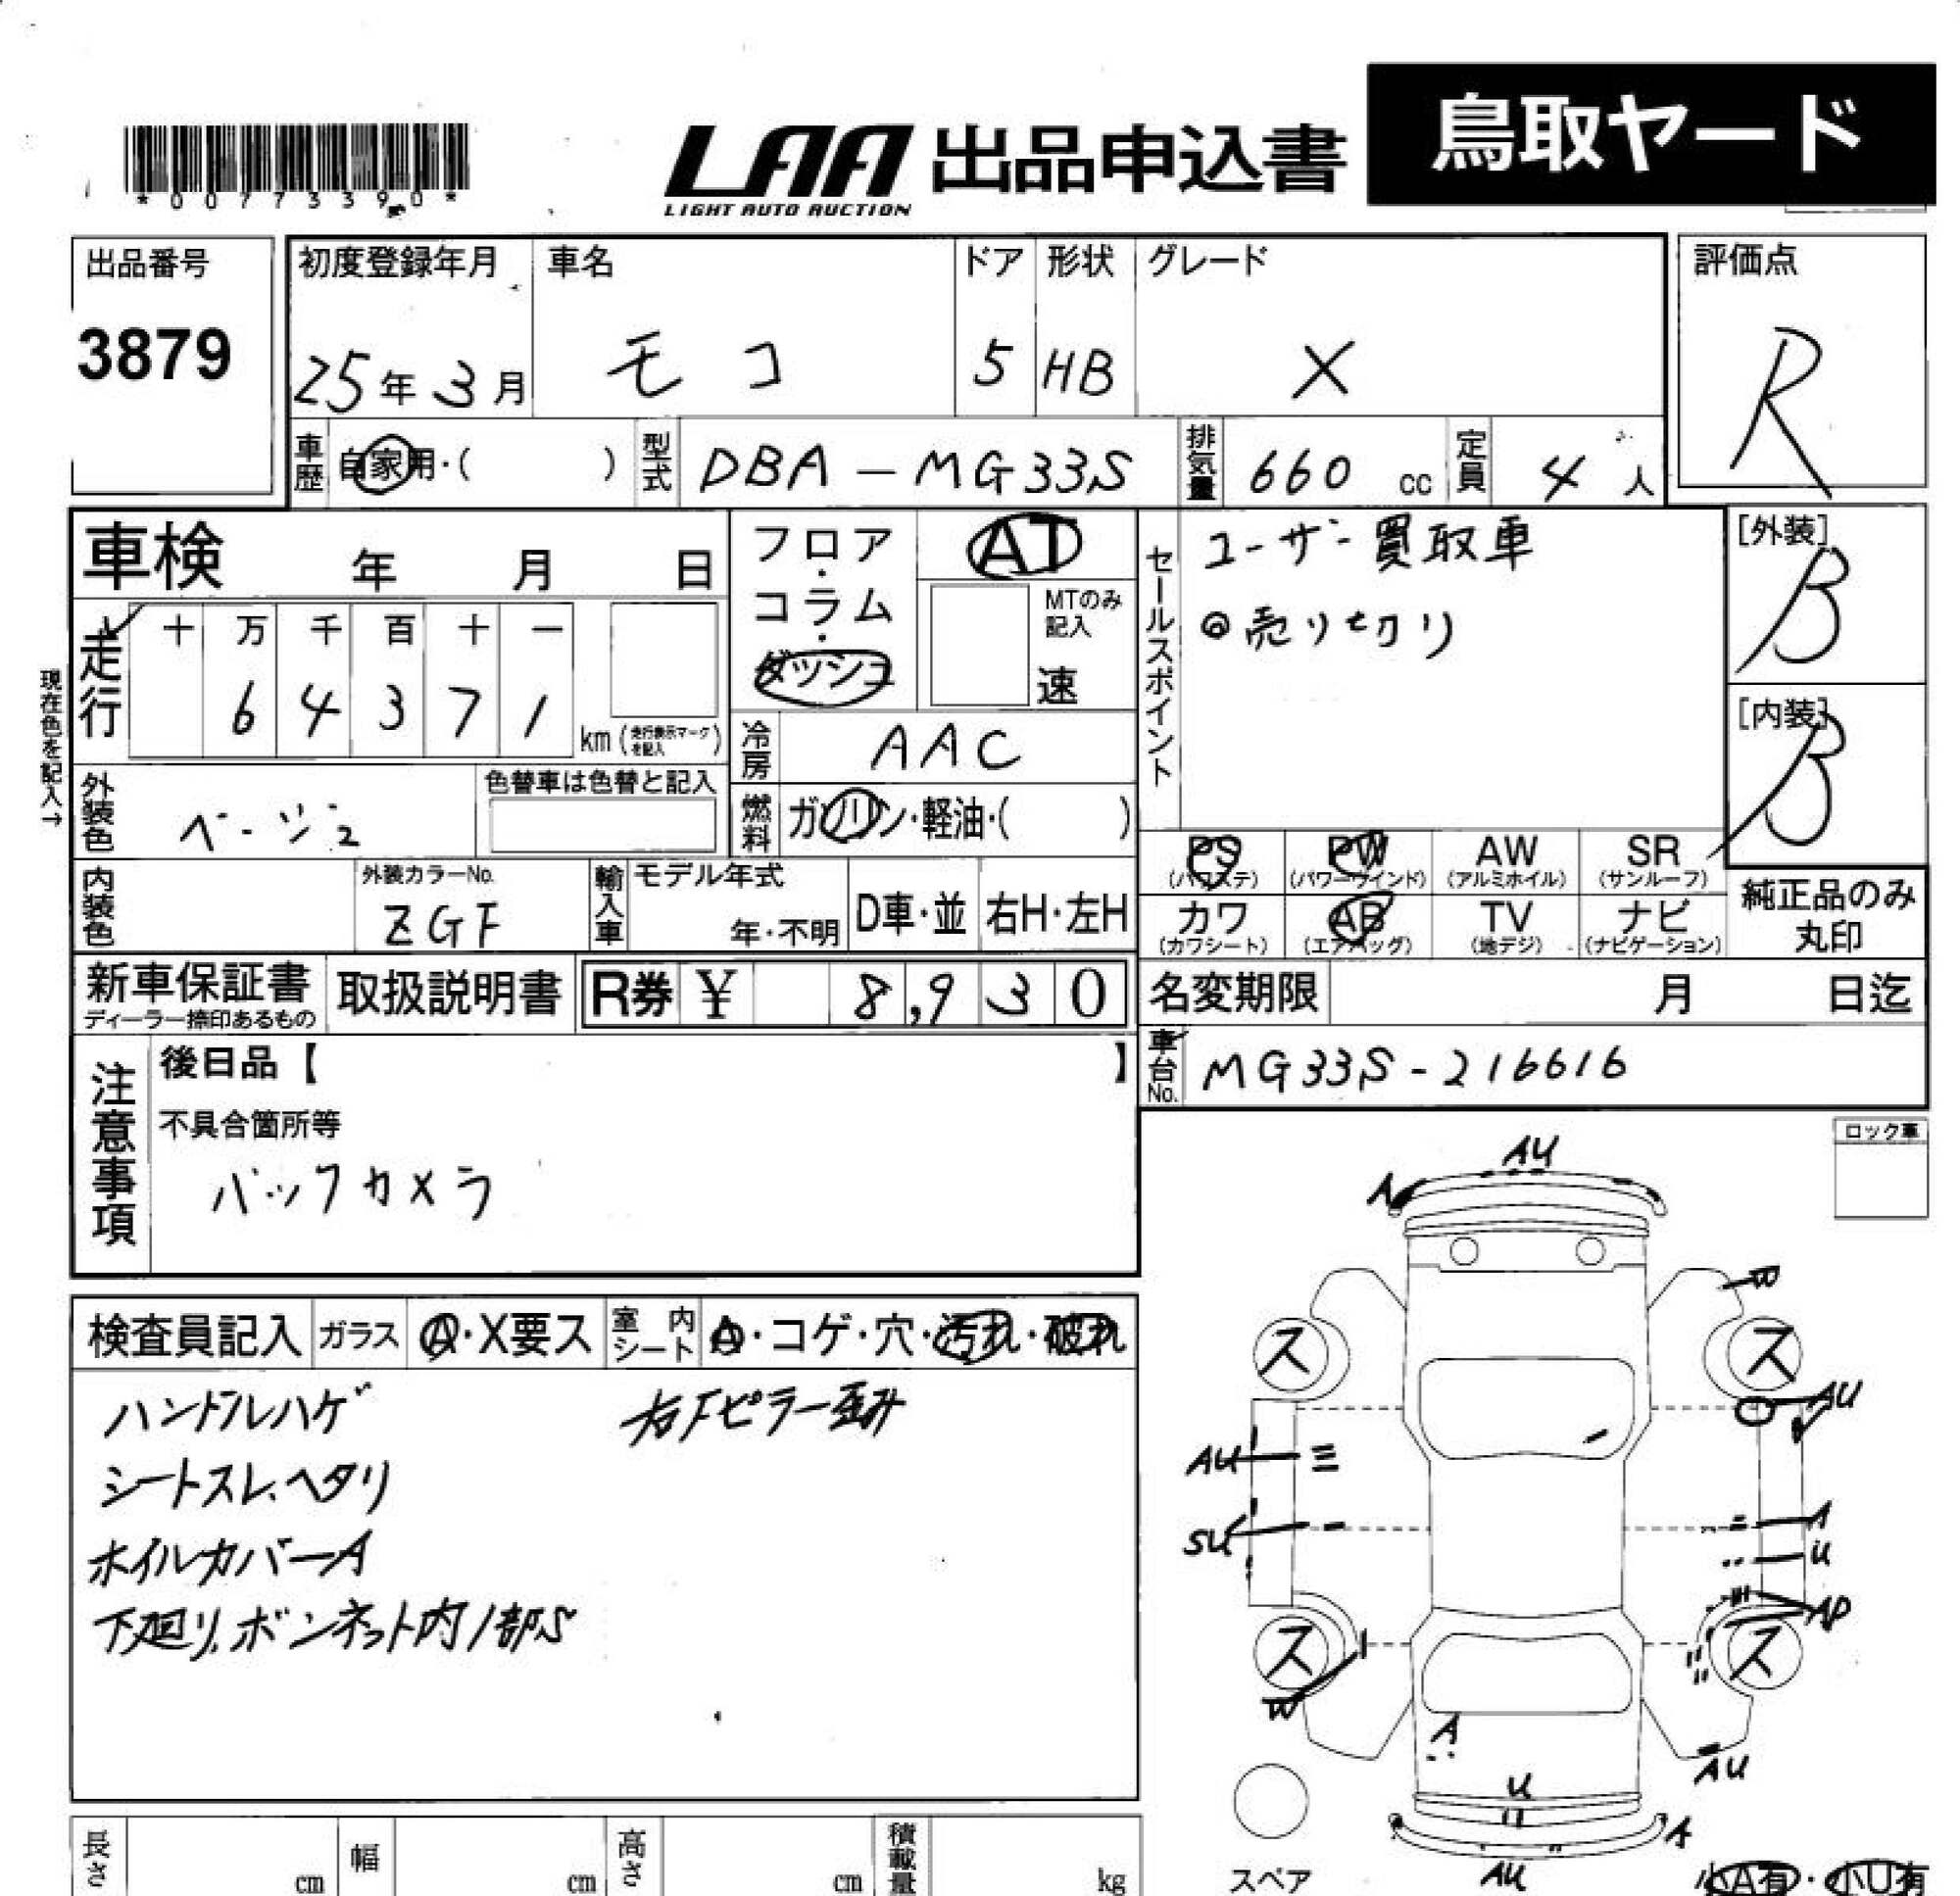 鳥取ヤード
LAA 出品申込書
LIGHT AUTO AUCTION
*00773390*
出品番号 初度登録年月 車名 ドア 形状 グレード 評価点
3879 25年3月 モコ 5 HB X R
車歴 自家用・( ) 型式 DBA-MG33S 排気量 660 cc 定員 4人
車検 年 月 日
フロア・コラム・ダッシュ
AT
MTのみ記入
速
セールスポイント
ユーザー買取車
◎売り切り
[外装]
B
[内装]
B
走行
十 万 千 百 十 一
6 4 3 7 1 km (走行表示マークを記入)
現在色を記入→
冷房 AAC
外装色 ベージュ
色替車は色替と記入
燃料 ガソリン・軽油・( )
PS (パワステ) PW (パワーウインド) AW (アルミホイル) SR (サンルーフ)
カワ (カワシート) AB (エアバッグ) TV (地デジ) ナビ (ナビゲーション)
純正品のみ
丸印
内装色
外装カラーNo.
ZGF
輸入車 モデル年式
年・不明 D車・並 右H・左H
新車保証書
ディーラー捺印あるもの
取扱説明書
R券 ¥ 8,930
名変期限 月 日迄
車台No. MG33S-216616
注意事項
後日品【 】
不具合箇所等
バックカメラ
ロック車
検査員記入 ガラス A・X要ス 室内シート A・コゲ・穴・汚れ・破れ
ハンドルハゲ 右Fピラー歪み
シートスレ、ヘタリ
ホイルカバーA
下廻り、ボンネット内1部S
AU
A
W
ス ス
AU
AU
SU A
U
AP
ス ス
W
A
AU
U
A
AU
スペア
小A有・小U有
長さ cm 幅 cm 高さ cm 積載量 kg